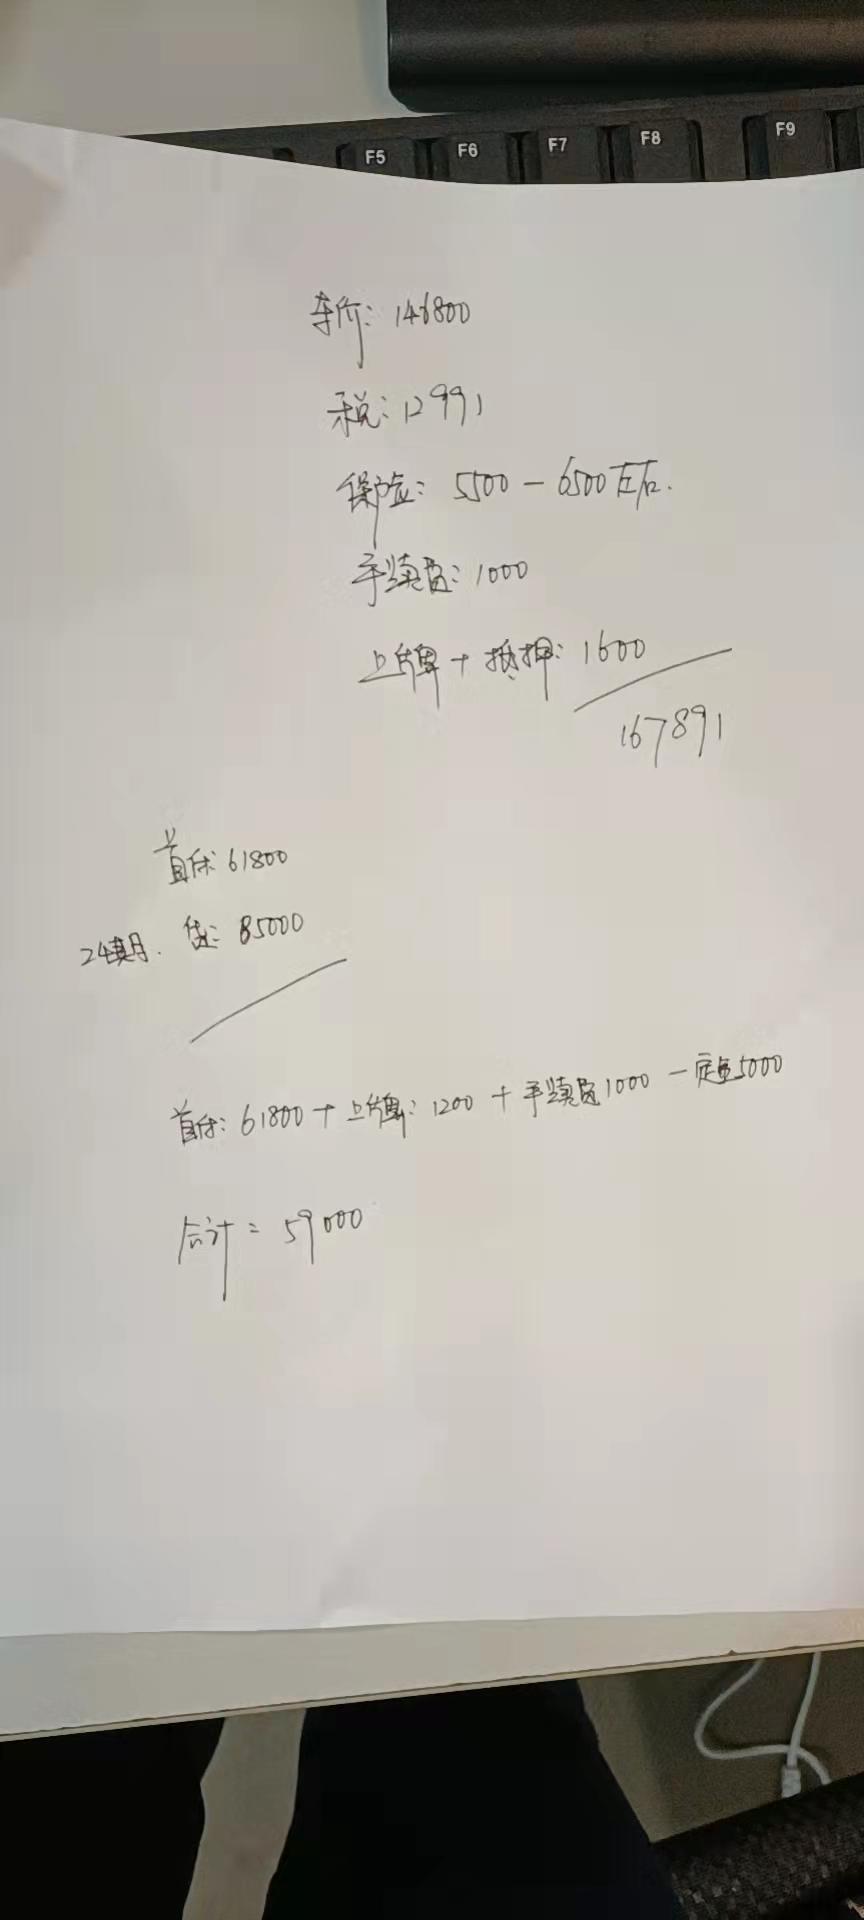 F5 F6 F7 F8 F9
车价: 146800
税: 12991
保险: 5500-6500左右.
手续费: 1000
上牌+抵押: 1600
167891
首付: 61800
24期. 贷: 85000
首付: 61800+上牌: 1200+手续费1000-定金5000
合计=59000